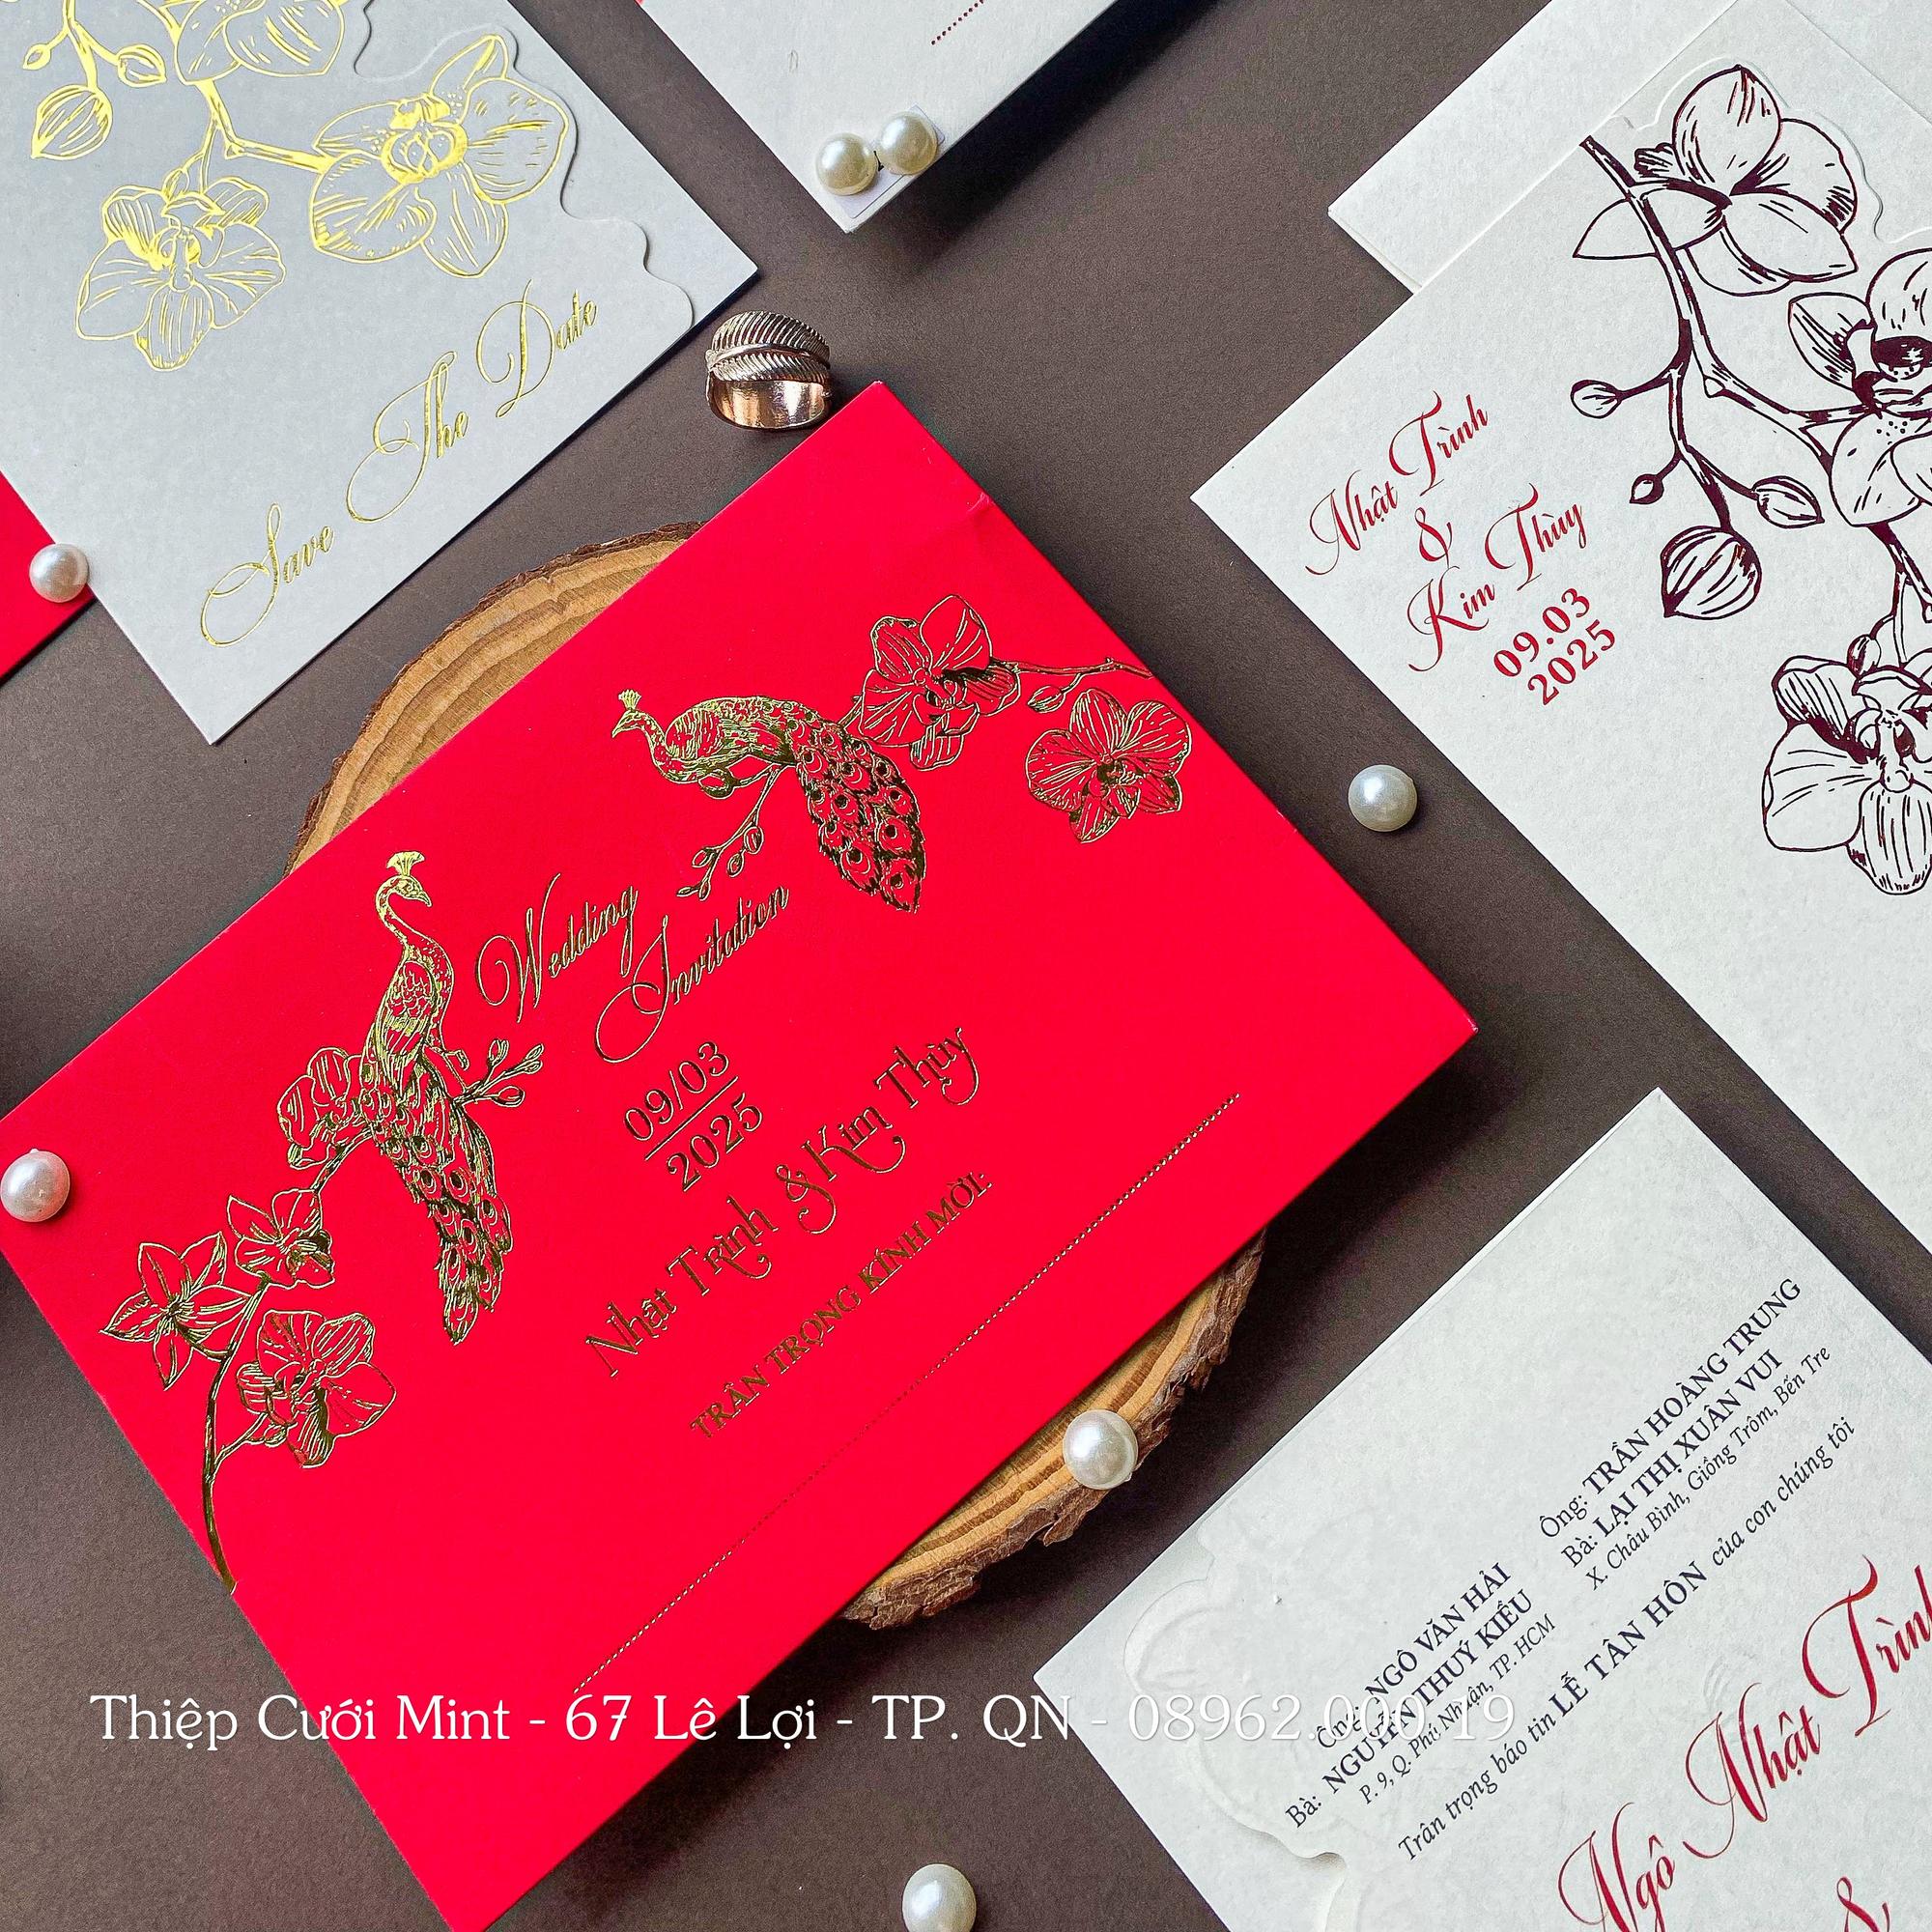 Save The Date
Nhật Trình
&
Kim Thùy
09.03
2025
Wedding
Invitation
09/03
2025
Nhật Trình & Kim Thùy
TRÂN TRỌNG KÍNH MỜI:
Ông: NGÔ VĂN HẢI
Bà: NGUYỄN THUÝ KIỀU
P. 9, Q. Phú Nhuận, TP. HCM
Ông: TRẦN HOÀNG TRUNG
Bà: LẠI THỊ XUÂN VUI
X. Châu Bình, Giồng Trôm, Bến Tre
Trân trọng báo tin LỄ TÂN HÔN của con chúng tôi
Ngô Nhật Trình
&
Thiệp Cưới Mint - 67 Lê Lợi - TP. QN - 08962.000.19